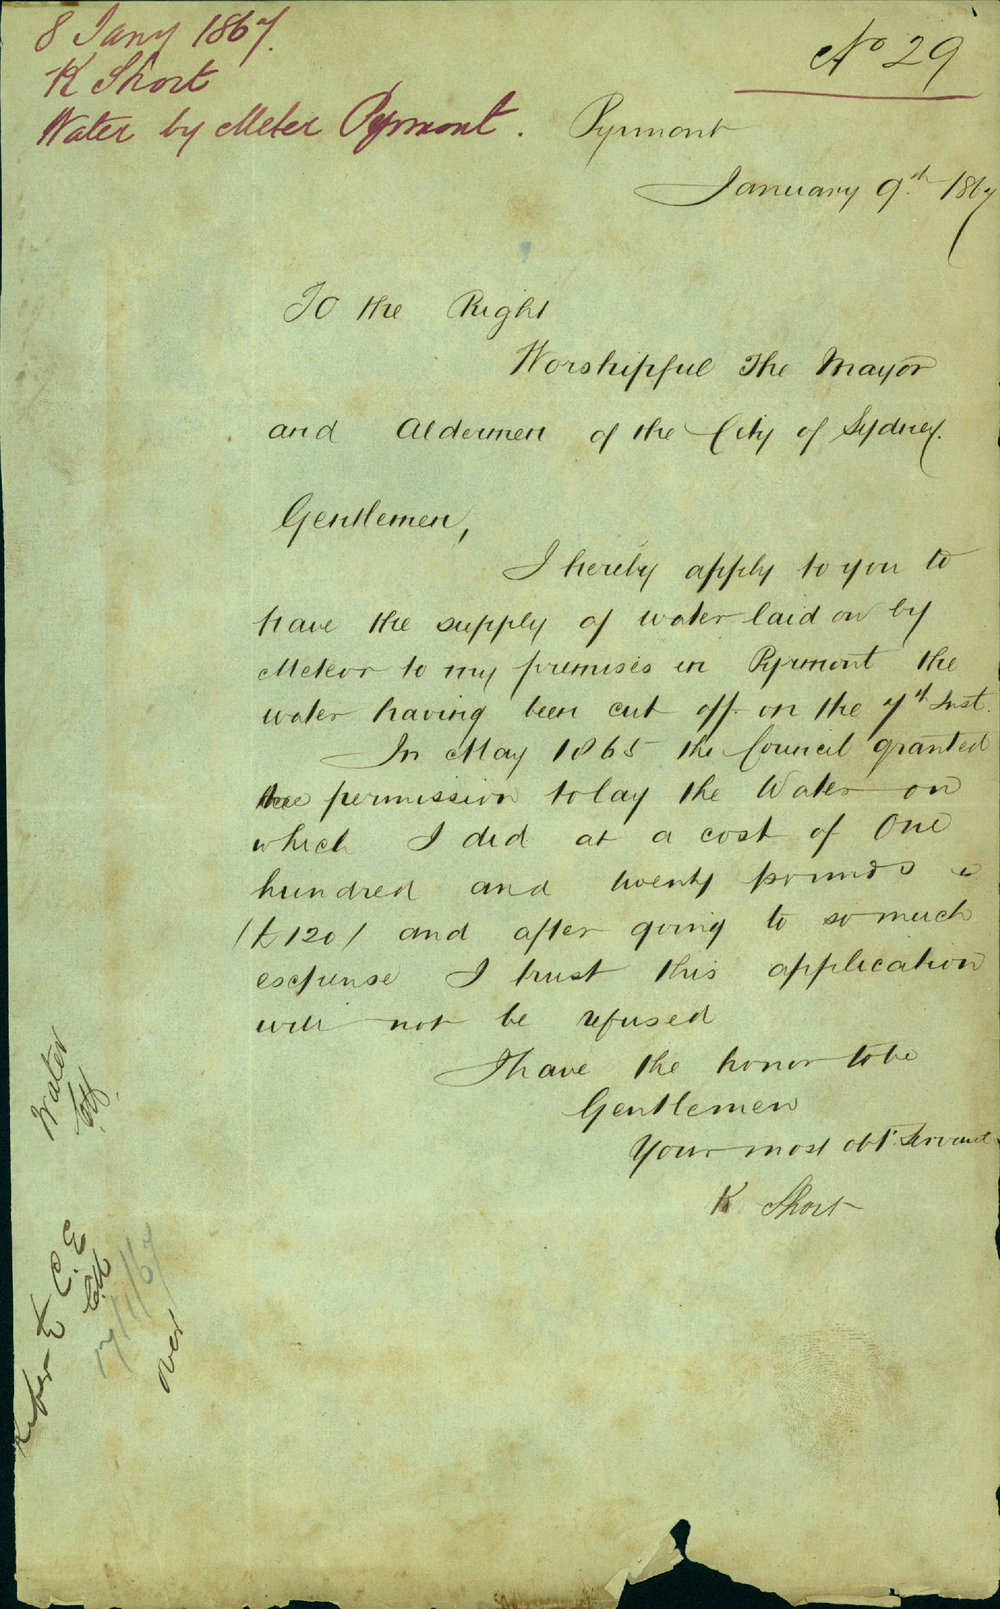 8 Jany 1867.
K Short
Water by Meter Pyrmont.
No 29
Pyrmont
January 9th 1867
To the Right
Worshipful The Mayor
and Aldermen of the City of Sydney.
Gentlemen,
I hereby apply to you to
have the supply of water laid on by
Meteor to my premises in Pyrmont the
water having been cut off on the 7th Inst.
In May 1865 the Council granted
me permission to lay the Water on
which I did at a cost of One
hundred and twenty pounds
(£120) and after going to so much
expense I trust this application
will not be refused
I have the honor to be
Gentlemen
Your most obt Servant
K Short
Water
Refer to C.E
17/1/67
over